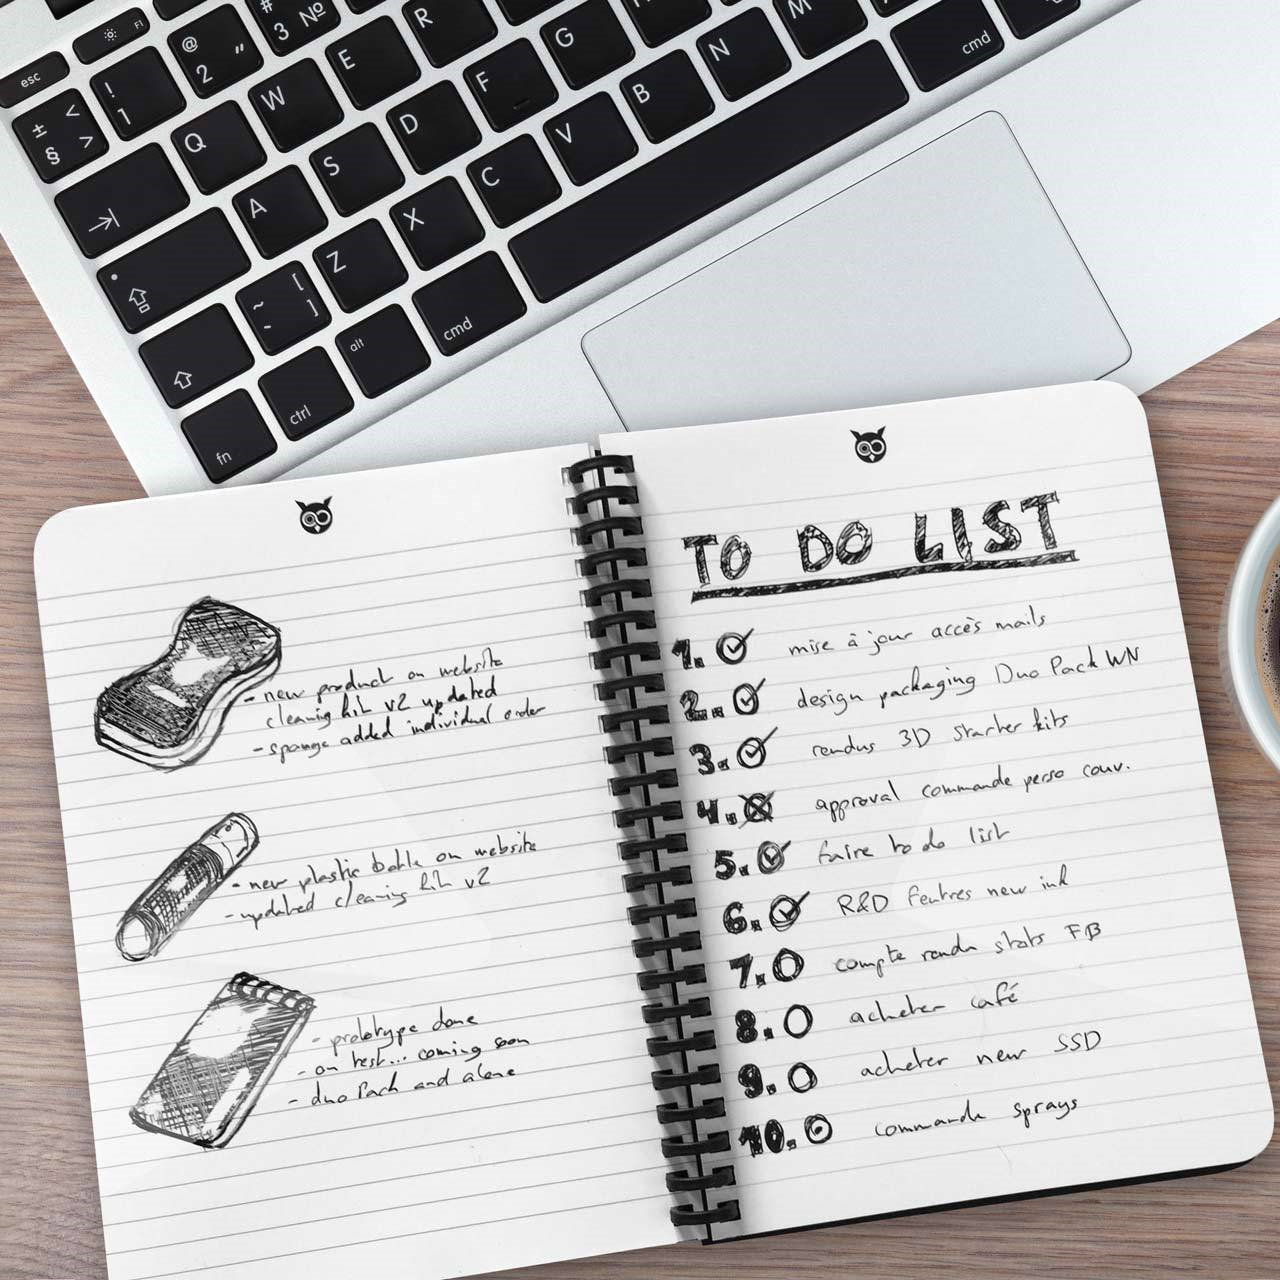 esc
F1
! 1
@ 2 "
# 3 №
± § < >
Q
W
E
R
A
S
D
F
G
Z
X
C
V
B
N
M
~ `
[ ]
fn
ctrl
alt
cmd
cmd
- new product on website
cleaning kit v2 updated
- sponge added individual order
- new plastic bottle on website
- updated cleaning kit v2
- prototype done
- on test... coming soon
- duo Pack and alone
TO DO LIST
1. mise à jour accès mails
2. design packaging Duo Pack WN
3. rendus 3D starter kits
4. approval commande perso couv.
5. faire to do list
6. R&D feutres new ink
7. compte rendu stats FB
8. acheter café
9. acheter new SSD
10. commande sprays